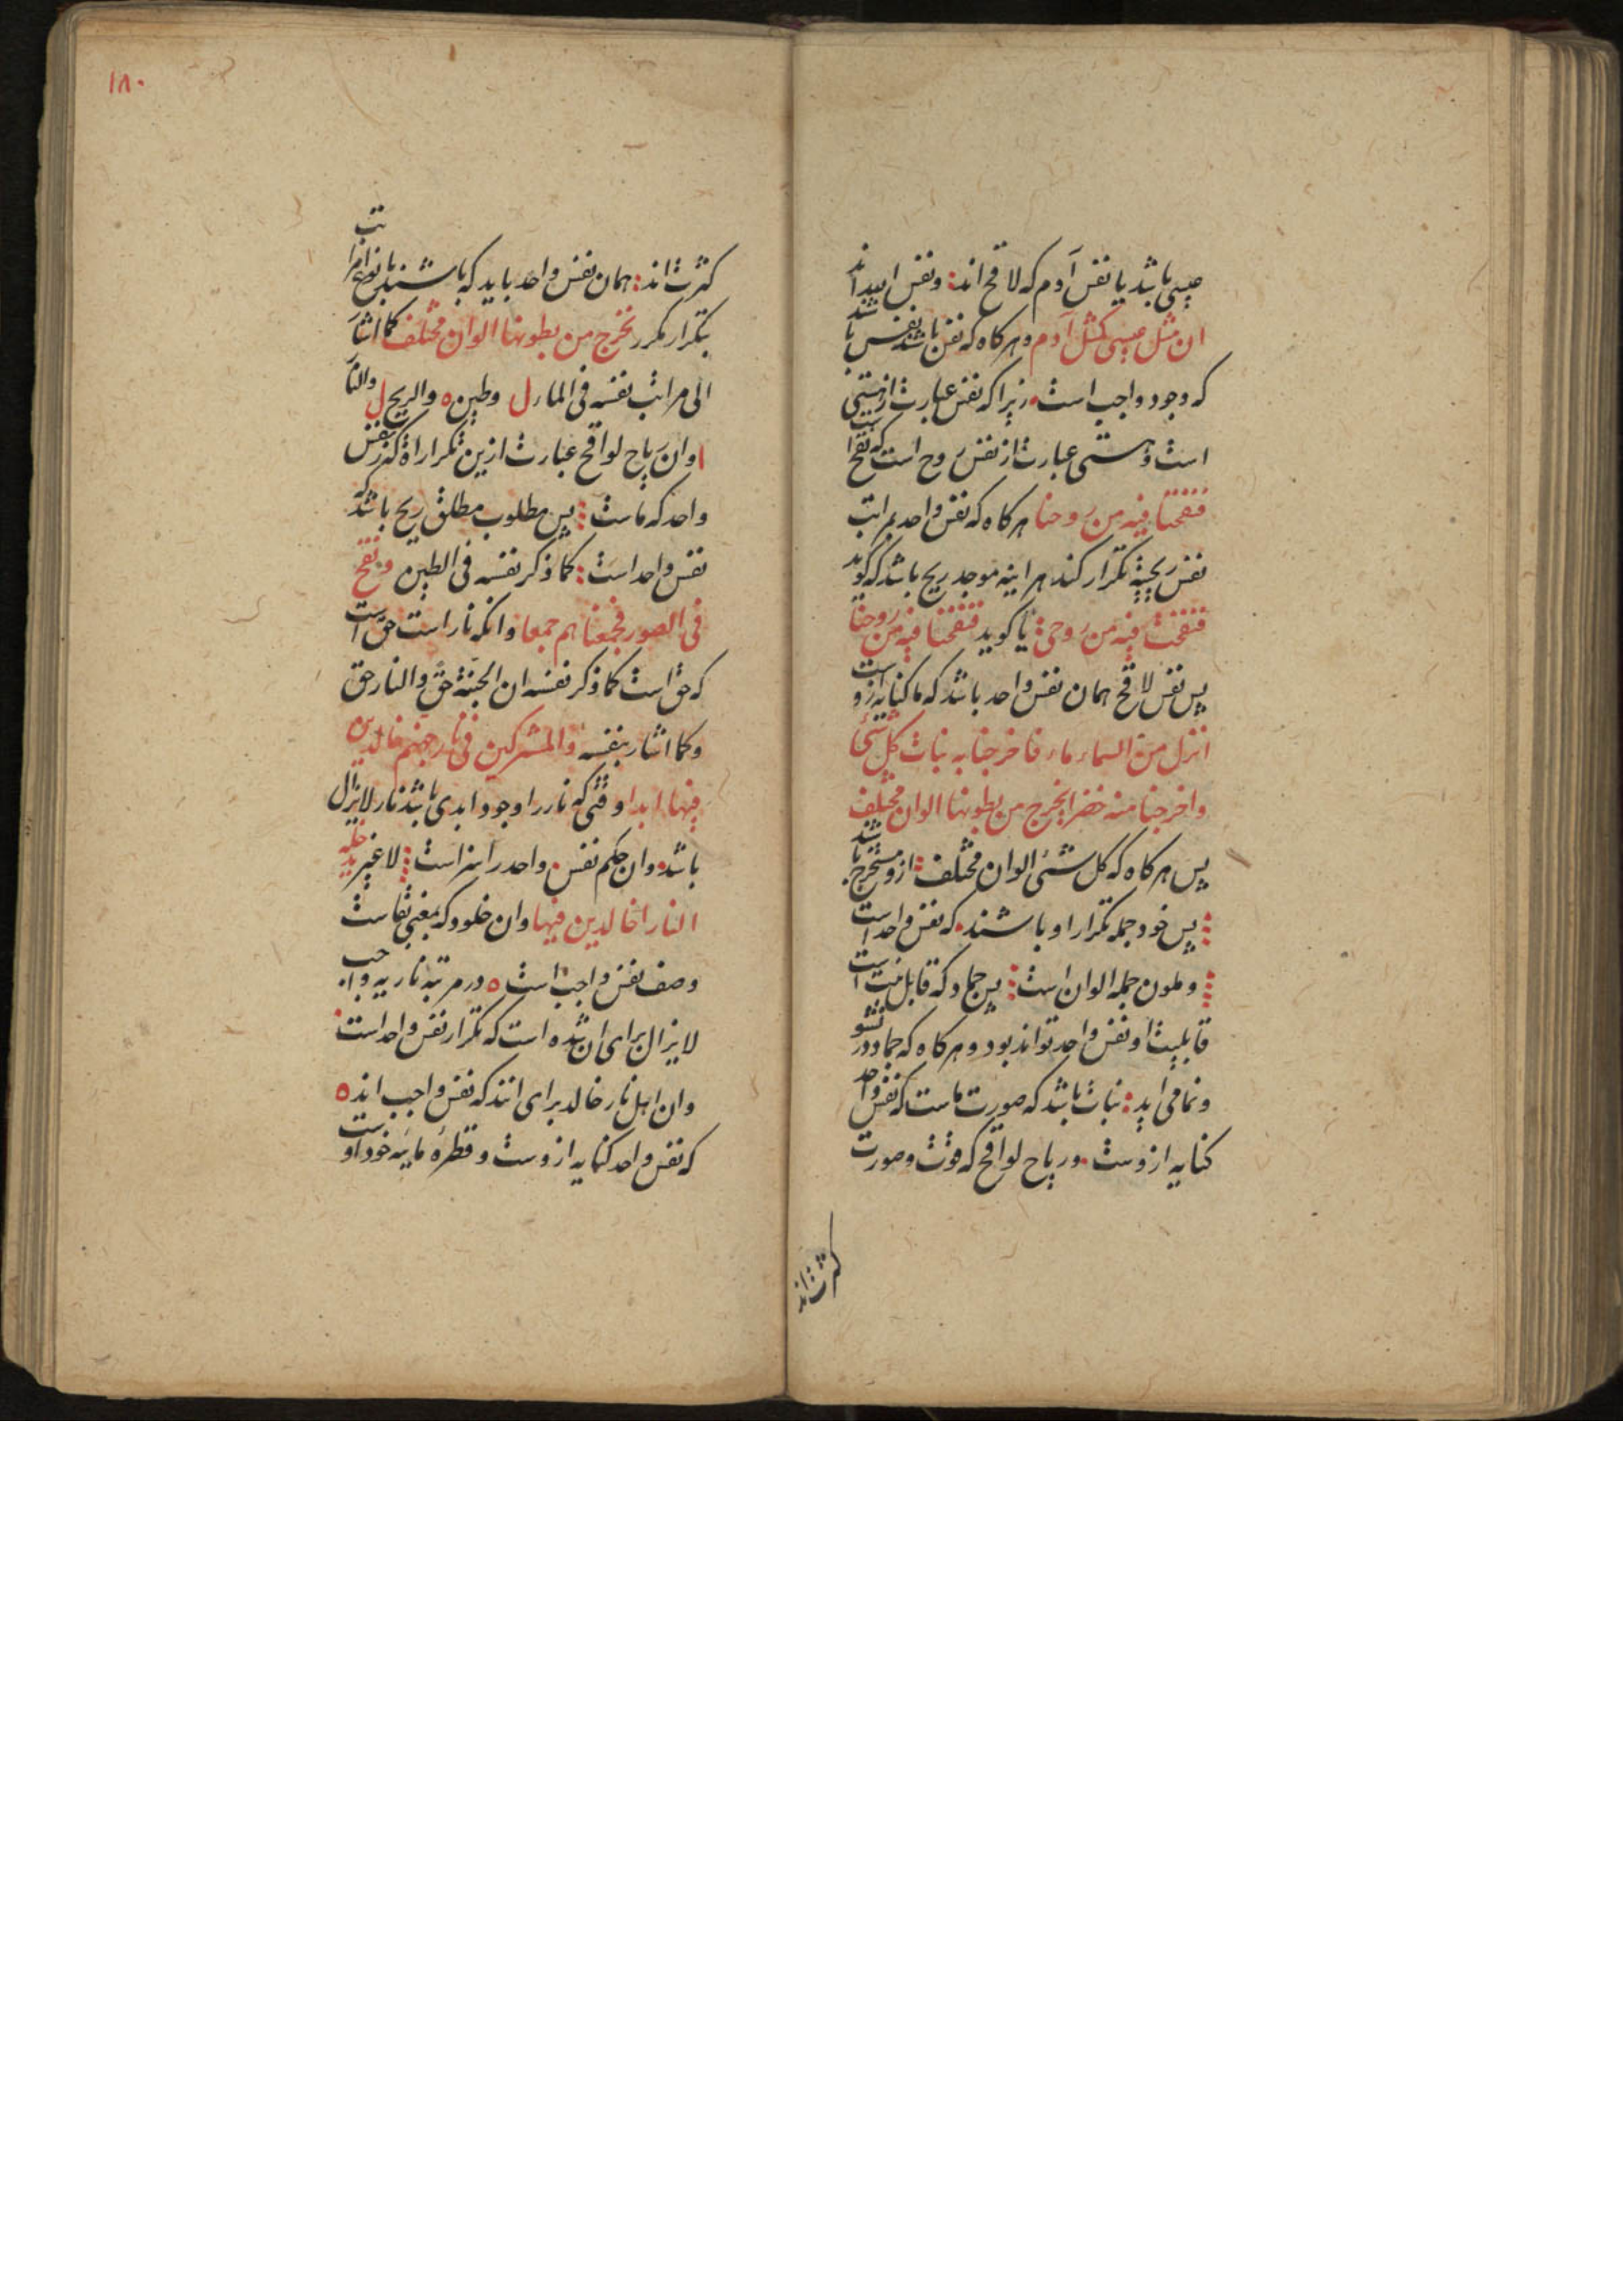 عیسی باشد یا نفس آدم که لاقح اند: و نفس
ان مثل عیسی کمثل آدم و هرکاه که نفس با نفس باشد
که وجود واجب است. زیرا که نفس عبارت از هستی
است و هستی عبارت از نفس روح است که نفخ
فنفخنا فیه من روحنا هرکاه که نفس واحد بمراتب
نفس ریحیه تکرار کند هراینه موجد ریح باشد که کوید
فنفخت فیه من روحی: یا کوید فنفخنا فیه من روحنا
پس نفس لاقح همان نفس واحد باشد که ما کنایه ازو ست
انزل من السماء ماء فاخرجنا به نبات کل شئی
واخرجنا منه خضرا یخرج من بطونها الوان مختلف
پس هرکاه که کل شئی الوان مختلف: ازو مستخرج باشد
پس خود جمله تکرار او باشند. که نفس واحد است
و ملون جمله الوان است: پس جماد که قابل است
قابلیت او نفس واحد تواند بود و هرکاه که جماد در نشو
و نما می اید: نبات باشد که صورت ماست که نفس واحد
کنایه ازوست. و ریاح لواقح که قوت و صورت
کثرت اند
۱۸۰
کثرت اند: همان نفس واحد باید که باشند بانواع مراتب
بتکرار مکرر یخرج من بطونها الوان مختلف کما اشار
الی مراتب نفسه فی الماء ل وطین ه والریح ل والنار
ا وان ریاح لواقح عبارت ازین تکرارات که نفس
واحد که ماست: پس مطلوب مطلق ریح باشد که
نفس واحد است: کما ذکر نفسه فی الطین ونفخ
فی الصور فجمعناهم جمعا وانکه نار است حق است
که حق است کما ذکر نفسه ان الجنة حق والنار حق
وکما اشار بنفسه والمشرکین فی نار جهنم خالدین
فیها ابدا وقتی که نار را وجود ابدی باشد نار لایزال
باشد. وان حکم نفس واحد را سزاست: لا غیر یدخله
النارا خالدین فیها وان خلود که بمعنی بقاست
وصف نفس واجب است ه ودر مرتبه ناریه واجب
لایزال برای ان شده است که تکرار نفس واحد است
وان اهل نار خالد برای انند که نفس واجب اند ه
که نفس واحد کنایه ازوست و قطره مائیه خود اوست